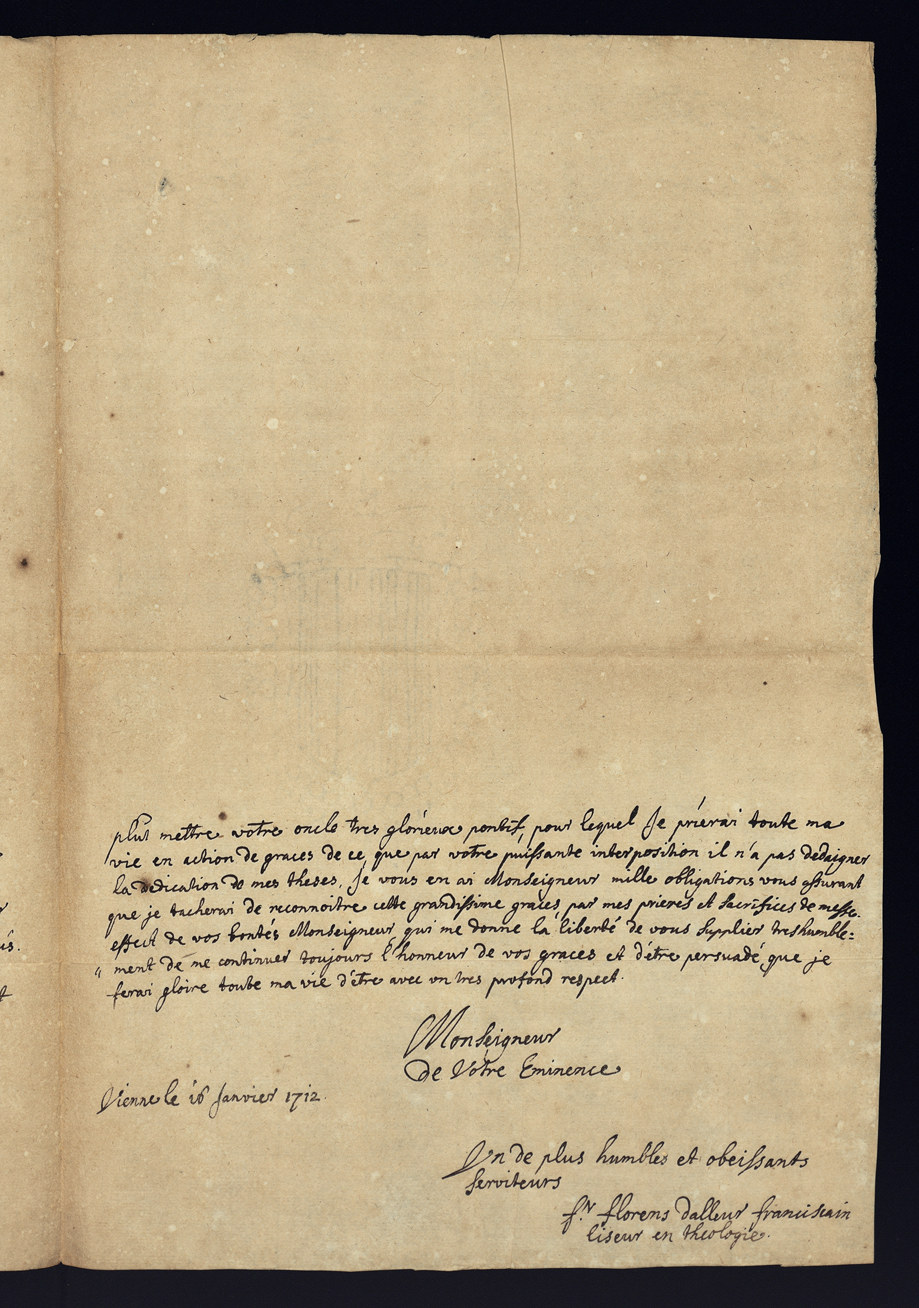 plut mettre votre oncle tres glorieux pontif, pour lequel Je prierai toute ma
vie en action de graces de ce que par votre puissante interposition il n'a pas dedaigner
la dedication de mes theses, Je vous en ai Monseigneur mille obligations vous assurant
que je tacherai de reconnoitre cette grandissime graces par mes prieres et sacrifices de messe.
effect de vos bontés Monseigneur qui me donne la liberté de vous supplier treshumble=
"ment de me continuer toujours l'honneur de vos graces et d'être persuadé que je
ferai gloire toute ma vie d'être avec un tres profond respect.
Monseigneur
De Vôtre Eminence
Vienne le 16 Janvier 1712.
Un de plus humbles et obeissants
serviteurs
fr. florens dalleur franciscain
liseur en theologie.